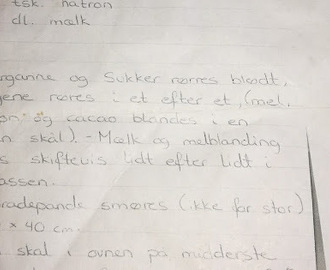 tsk. natron
dl. mælk
og Sukker røres blødt,
røres i et efter et, (mel.
og cacao blandes i en
skål). - Mælk og melblanding
skiftevis lidt efter lidt i
assen.
radepande smøres (ikke for stor)
x 40 cm.
skal i ovnen på midderste